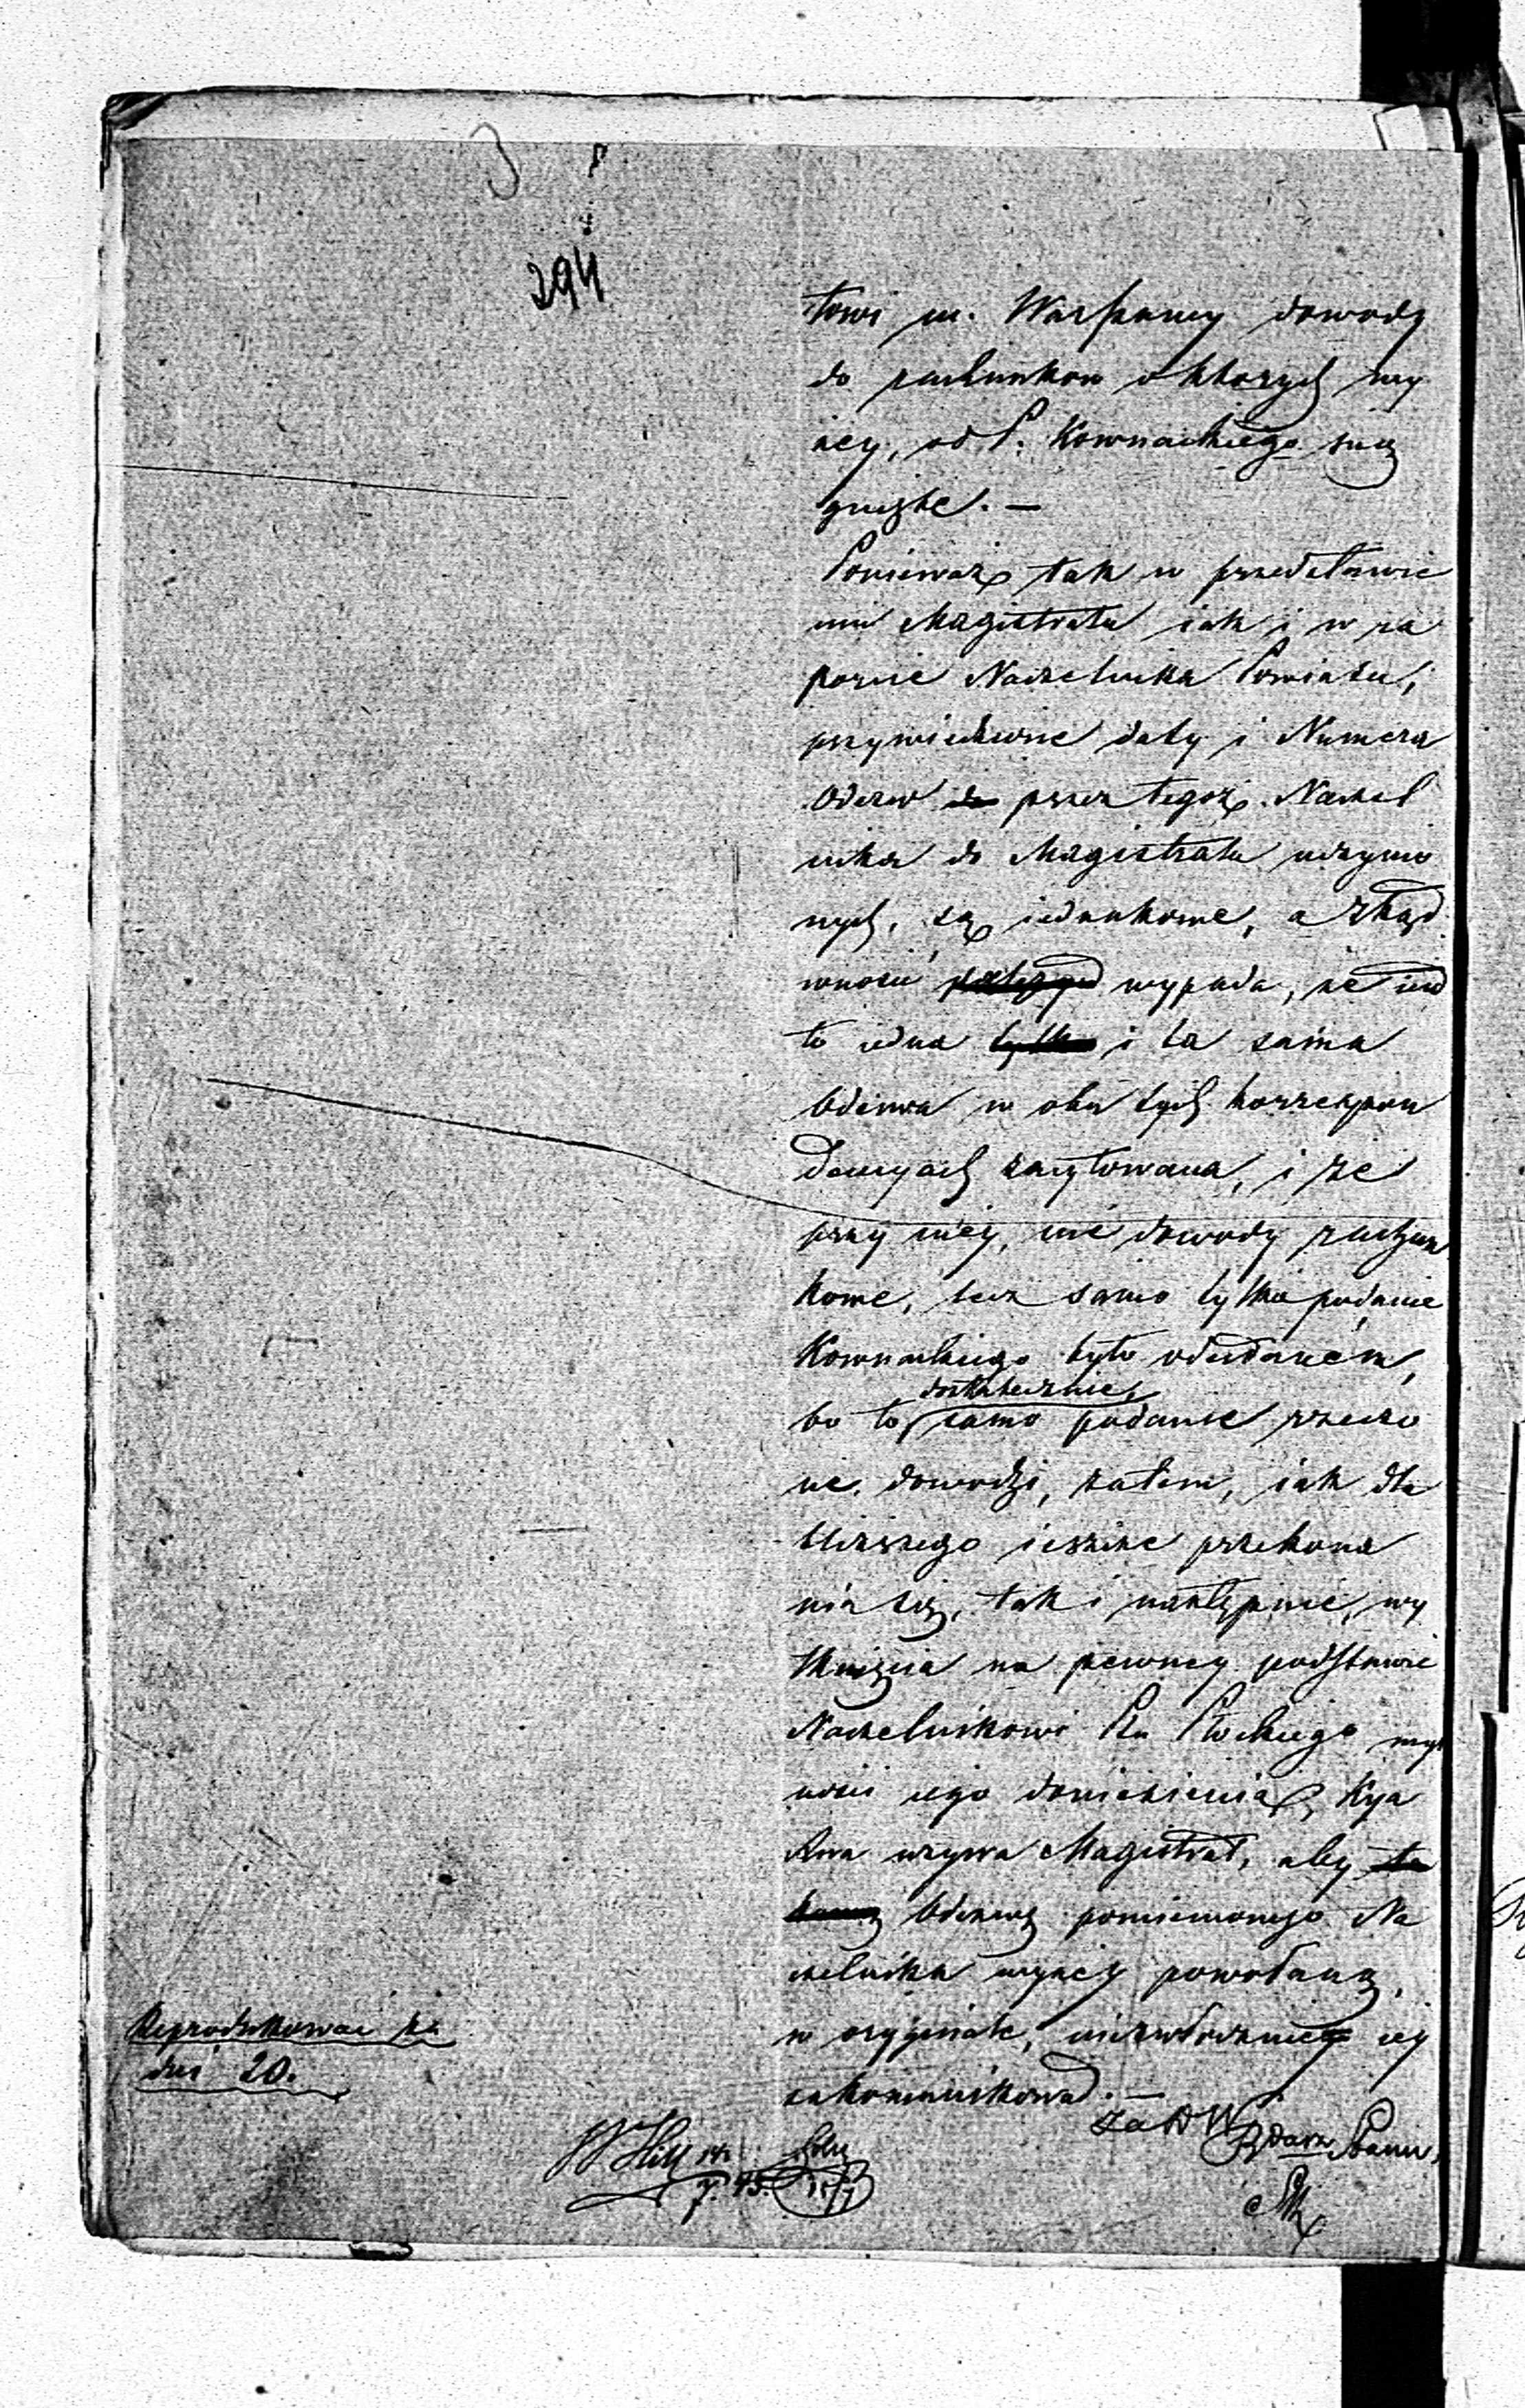 294
towi m. Warszawy dowody
do rachunkow o ktorych wy
żey, od P. Kownackiego ścią
gnięte. —
Ponieważ tak w przedstawie
niu Magistratu iak i w ra
porcie Naczelnika Powiatu,
przywiedzione daty i Numera
Odezw do przez tegoż Naczel
nika do Magistratu uczynio
nych, są iednakowe, a ztąd
wnosić wypada, że iest
to iedna tylko i ta sama
Odezwa w obu tych korrespon
dencyach zacytowana, i że
przy niey, nie dowody rachun
kowe, lecz samo tylko podanie
Kownackiego było odesłanem,
dostatecznie
bo to samo podanie rzeczo
ne dowodzi, zatem, iak dla
bliższego ieszcze przekona
nia się, tak i następnie, wy
tknięcia na pewney podstawie
Naczelnikowi Ptu Płockiego myl
ności iego doniesienia, Kza
dowa wzywa Magistrat, aby
Odezwę pomienionego Na
czelnika wyżey powołaną,
w oryginale, niezwłocznie iey
zakommunikował. —
Reprodukować za
dni 20.